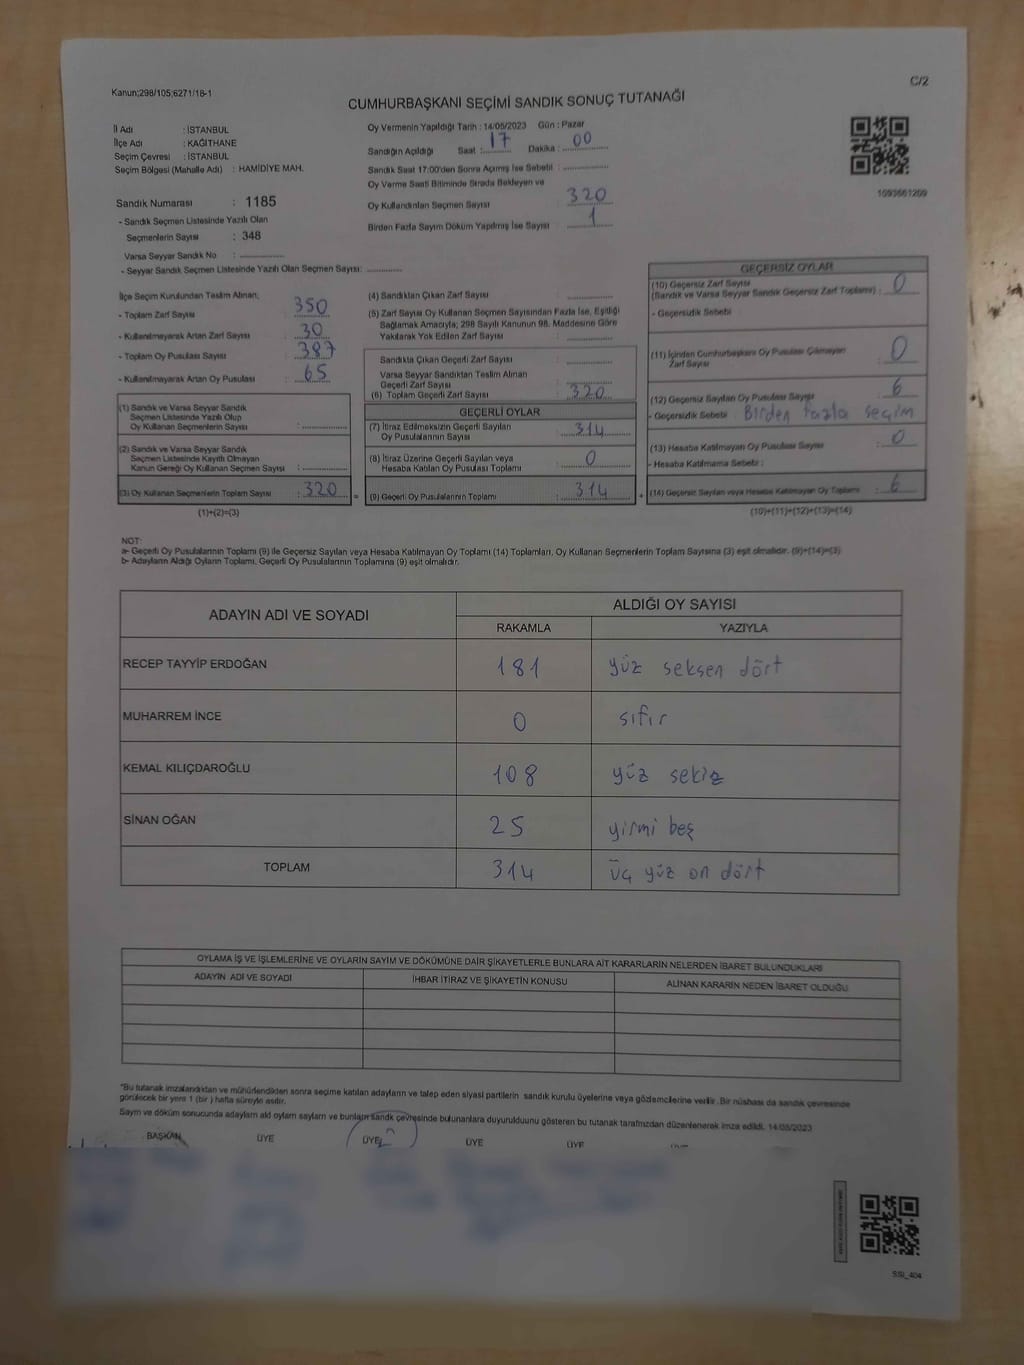 Kanun;298/105;6271/18-1
C/2
CUMHURBAŞKANI SEÇİMİ SANDIK SONUÇ TUTANAĞI
İl Adı : İSTANBUL
İlçe Adı : KAĞITHANE
Seçim Çevresi : İSTANBUL
Seçim Bölgesi (Mahalle Adı) : HAMİDİYE MAH.
Sandık Numarası : 1185
- Sandık Seçmen Listesinde Yazılı Olan
Seçmenlerin Sayısı : 348
Varsa Seyyar Sandık No : ..............
- Seyyar Sandık Seçmen Listesinde Yazılı Olan Seçmen Sayısı: ............
Oy Vermenin Yapıldığı Tarih : 14/05/2023 Gün : Pazar
Sandığın Açıldığı Saat : 17 Dakika : 00
Sandık Saat 17:00'den Sonra Açımış İse Sebebi : ..............
Oy Verme Saati Bitiminde Sırada Bekleyen ve
Oy Kullandırılan Seçmen Sayısı : 320
Birden Fazla Sayım Döküm Yapılmış İse Sayısı : 1
1093661209
İlçe Seçim Kurulundan Teslim Alınan;
- Toplam Zarf Sayısı : 350
- Kullanılmayarak Artan Zarf Sayısı : 30
- Toplam Oy Pusulası Sayısı : 387
- Kullanılmayarak Artan Oy Pusulası : 65
(1) Sandık ve Varsa Seyyar Sandık
Seçmen Listesinde Yazılı Olup
Oy Kullanan Seçmenlerin Sayısı : ..............
(2) Sandık ve Varsa Seyyar Sandık
Seçmen Listesinde Kayıtlı Olmayan
Kanun Gereği Oy Kullanan Seçmen Sayısı : ..............
(3) Oy Kullanan Seçmenlerin Toplam Sayısı : 320
(1)+(2)=(3)
(4) Sandıktan Çıkan Zarf Sayısı : ..............
(5) Zarf Sayısı Oy Kullanan Seçmen Sayısından Fazla İse, Eşitliği
Sağlamak Amacıyla; 298 Sayılı Kanunun 98. Maddesine Göre
Yakılarak Yok Edilen Zarf Sayısı : ..............
Sandıkta Çıkan Geçerli Zarf Sayısı : ..............
Varsa Seyyar Sandıktan Teslim Alınan
Geçerli Zarf Sayısı : ..............
(6) Toplam Geçerli Zarf Sayısı : 320
GEÇERLİ OYLAR
(7) İtiraz Edilmeksizin Geçerli Sayılan
Oy Pusulalarının Sayısı : 314
(8) İtiraz Üzerine Geçerli Sayılan veya
Hesaba Katılan Oy Pusulası Toplamı : 0
= (9) Geçerli Oy Pusulalarının Toplamı : 314 +
GEÇERSİZ OYLAR
(10) Geçersiz Zarf Sayısı
(Sandık ve Varsa Seyyar Sandık Geçersiz Zarf Toplamı) : 0
- Geçersizlik Sebebi :
(11) İçinden Cumhurbaşkanı Oy Pusulası Çıkmayan
Zarf Sayısı : 0
(12) Geçersiz Sayılan Oy Pusulası Sayısı : 6
- Geçersizlik Sebebi : Birden fazla seçim
(13) Hesaba Katılmayan Oy Pusulası Sayısı : 0
- Hesaba Katılmama Sebebi :
(14) Geçersiz Sayılan veya Hesaba Katılmayan Oy Toplamı : 6
(10)+(11)+(12)+(13)=(14)
NOT:
a- Geçerli Oy Pusulalarının Toplamı (9) ile Geçersiz Sayılan veya Hesaba Katılmayan Oy Toplamı (14) Toplamları, Oy Kullanan Seçmenlerin Toplam Sayısına (3) eşit olmalıdır. (9)+(14)=(3)
b- Adayların Aldığı Oyların Toplamı, Geçerli Oy Pusulalarının Toplamına (9) eşit olmalıdır.
ADAYIN ADI VE SOYADI
ALDIĞI OY SAYISI
RAKAMLA YAZIYLA
RECEP TAYYİP ERDOĞAN 181 yüz seksen dört
MUHARREM İNCE 0 sıfır
KEMAL KILIÇDAROĞLU 108 yüz sekiz
SİNAN OĞAN 25 yirmi beş
TOPLAM 314 üç yüz on dört
OYLAMA İŞ VE İŞLEMLERİNE VE OYLARIN SAYIM VE DÖKÜMÜNE DAİR ŞİKAYETLERLE BUNLARA AİT KARARLARIN NELERDEN İBARET BULUNDUKLARI
ADAYIN ADI VE SOYADI İHBAR İTİRAZ VE ŞİKAYETİN KONUSU ALINAN KARARIN NEDEN İBARET OLDUĞU
*Bu tutanak imzalandıktan ve mühürlendikten sonra seçime katılan adayların ve talep eden siyasi partilerin sandık kurulu üyelerine veya gözlemcilerine verilir. Bir nüshası da sandık çevresinde
görülecek bir yere 1 (bir ) hafta süreyle asılır.
Sayım ve döküm sonucunda adayların aldı oyların sayların ve bunların sandık çevresinde bulunanlara duyurulduunu gösteren bu tutanak tarafımızdan düzenlenerek imza edildi. 14/05/2023
BAŞKAN ÜYE ÜYE ÜYE ÜYE
SSİ_404